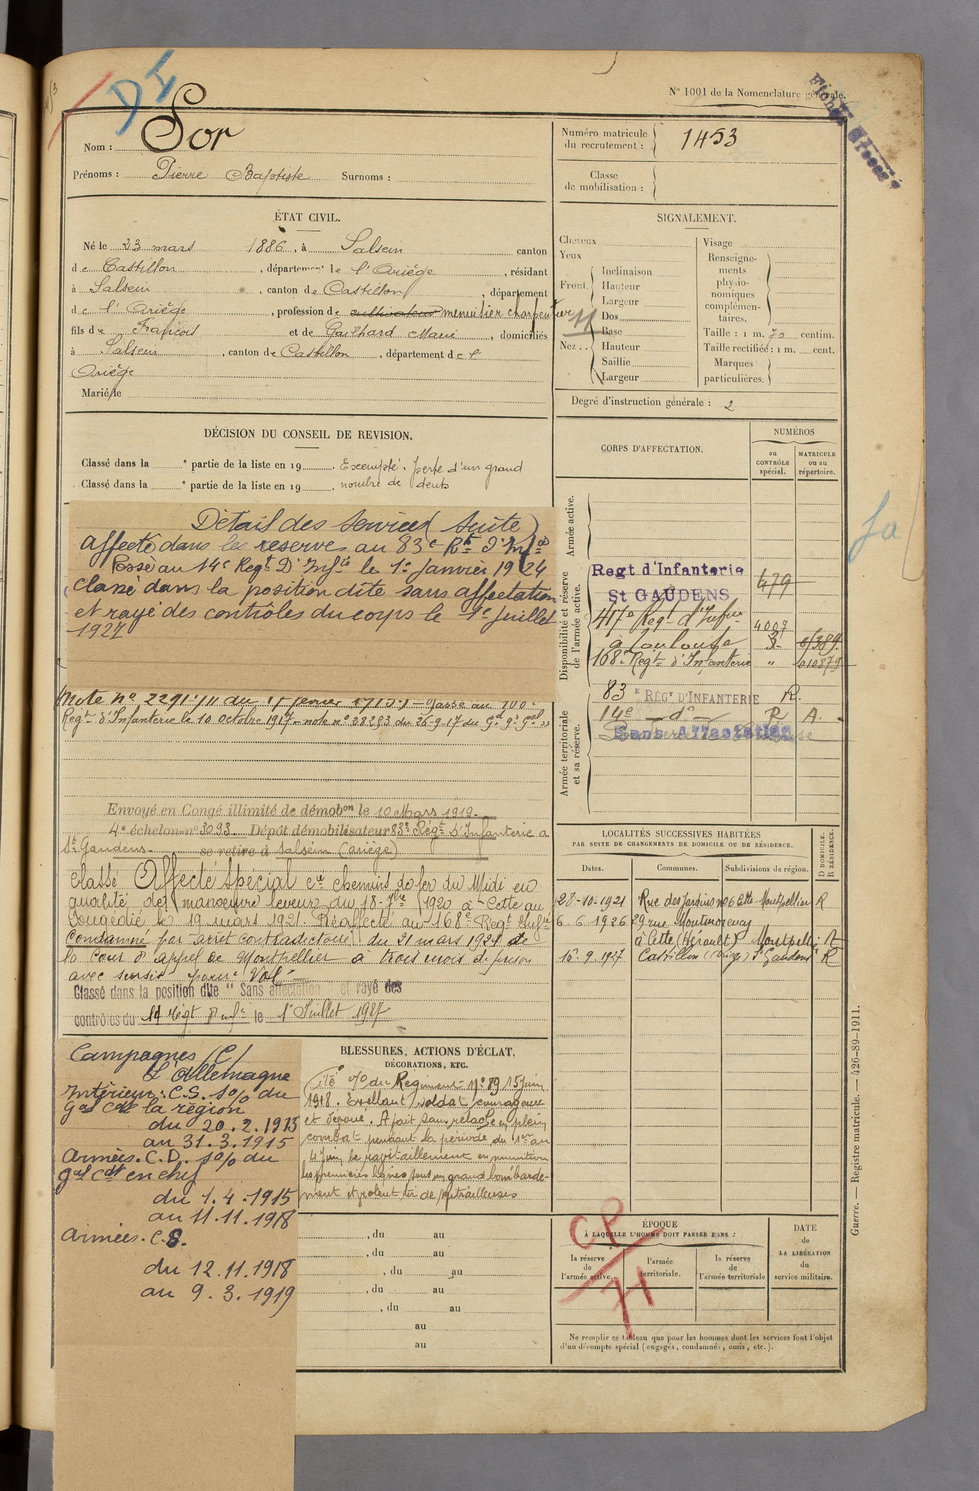 DI
N° 1001 de la Nomenclature générale.
Nom : Sor
Prénoms : Pierre Baptiste Surnoms :
Numéro matricule du recrutement : 1453
Classe de mobilisation :
ÉTAT CIVIL.
Né le 23 mars 1886, à Salsein canton
de Castillon, département de l'Ariège, résidant
à Salsein, canton de Castillon, département
de l'Ariège, profession de cultivateur menuisier charpentier
fils de François et de Gailhard Marie, domiciliés
à Salsein, canton de Castillon, département de l'
Ariège
Marié/le
SIGNALEMENT.
Cheveux
Yeux
Front
Inclinaison
Hauteur
Largeur
Nez
Dos
Base
Hauteur
Saillie
Largeur
Visage
Renseigne-
ments
physio-
nomiques
complémen-
taires.
Taille : 1 m. 70 centim.
Taille rectifiée : 1 m. cent.
Marques
particulières.
Degré d'instruction générale : 2
DÉCISION DU CONSEIL DE REVISION.
Classé dans la e partie de la liste en 19 . Exempté. perte d'un grand
Classé dans la e partie de la liste en 19 . nombre de dents
Détail des services (suite)
affecté dans les reserve au 83e Rt d'Infie
Passé au 14e Regt D'Infie le 1er Janvier 1924
classé dans la position dite sans affectation
et rayé des contrôles du corps le 1er Juillet
1927
Note n° 2291/11 du
Regt d'Infanterie le 10 octobre 1917 - note n° 28293 du 26-9-17 du
Envoyé en Congé illimité de démobon le 10 Mars 1919.
4e échelon n° 3093. Dépôt démobilisateur 83e Régt D'Infanterie a
St Gaudens. se retire à Salsein (Ariège)
Classé Affecté Spécial Cie chemins de fer du Midi en
qualité de manœuvre leveur du 18-7bre 1920 à Cette au
Congédié le 19 mars 1921. Réaffecté au 168e Regt Infie
Condamné par arret contradictoire du 21 mars 1924 de
la Cour d'appel de Montpellier à trois mois de prison
avec sursis pour Vol.
Classé dans la position dite " Sans affectation " et rayé des
contrôles du 14 Régt D'Infie le 1er Juillet 1927
CORPS D'AFFECTATION.
NUMÉROS
au CONTRÔLE spécial.
MATRICULE ou au répertoire.
Armée active.
Disponibilité et réserve de l'armée active.
Regt d'Infanterie
St GAUDENS
479
417e Reg. d'Infie 4007
à Toulouse
168e Regt d'Infanterie " 010879
Armée territoriale et sa réserve.
83e REGt D'INFANTERIE R.
14e - do - R A.
Sans Affectation
LOCALITÉS SUCCESSIVES HABITÉES
PAR SUITE DE CHANGEMENTS DE DOMICILE OU DE RÉSIDENCE.
D DOMICILE. R RÉSIDENCE.
Dates. Communes. Subdivisions de région.
28-10-1921 Rue des Jardins n°6 Cette Montpellier R
6-6-1926 29 rue Montmorency
à Cette (Hérault) Montpellier R
16-9-1927 Castillon (Ariège) St Gaudens R
Campagnes (C/
L'Allemagne
Intérieur : C.S. s/o/o du
Gal Cdt la région
du 20.2.1915
au 31.3.1915
Armées. C.D. s/o/o du
gal cdt en chef
du 1.4.1915
au 11.11.1918
Armées. C.S.
du 12.11.1918
au 9.3.1919
BLESSURES, ACTIONS D'ÉCLAT,
DÉCORATIONS, ETC.
Cité o/o du Régiment N° 89 15 juin
1918. Excellent soldat courageux
et dévoué. A fait sans relache en plein
combat pendant la période du 1er au
4 juin, le ravitaillement en munitions
les premières lignes sous un grand bombarde-
ment et violent tir de mitrailleuses
, du au
, du au
, du au
, du au
, du au
au
au
CP
71
ÉPOQUE
À LAQUELLE L'HOMME DOIT PASSER DANS :
la réserve de l'armée active.
l'armée territoriale.
la réserve de l'armée territoriale
DATE de LA LIBÉRATION du service militaire.
Ne remplir ce tableau que pour les hommes dont les services font l'objet
d'un décompte spécial (engagés, condamnés, omis, etc.).
Guerre. — Registre matricule. — 426-89-1911.